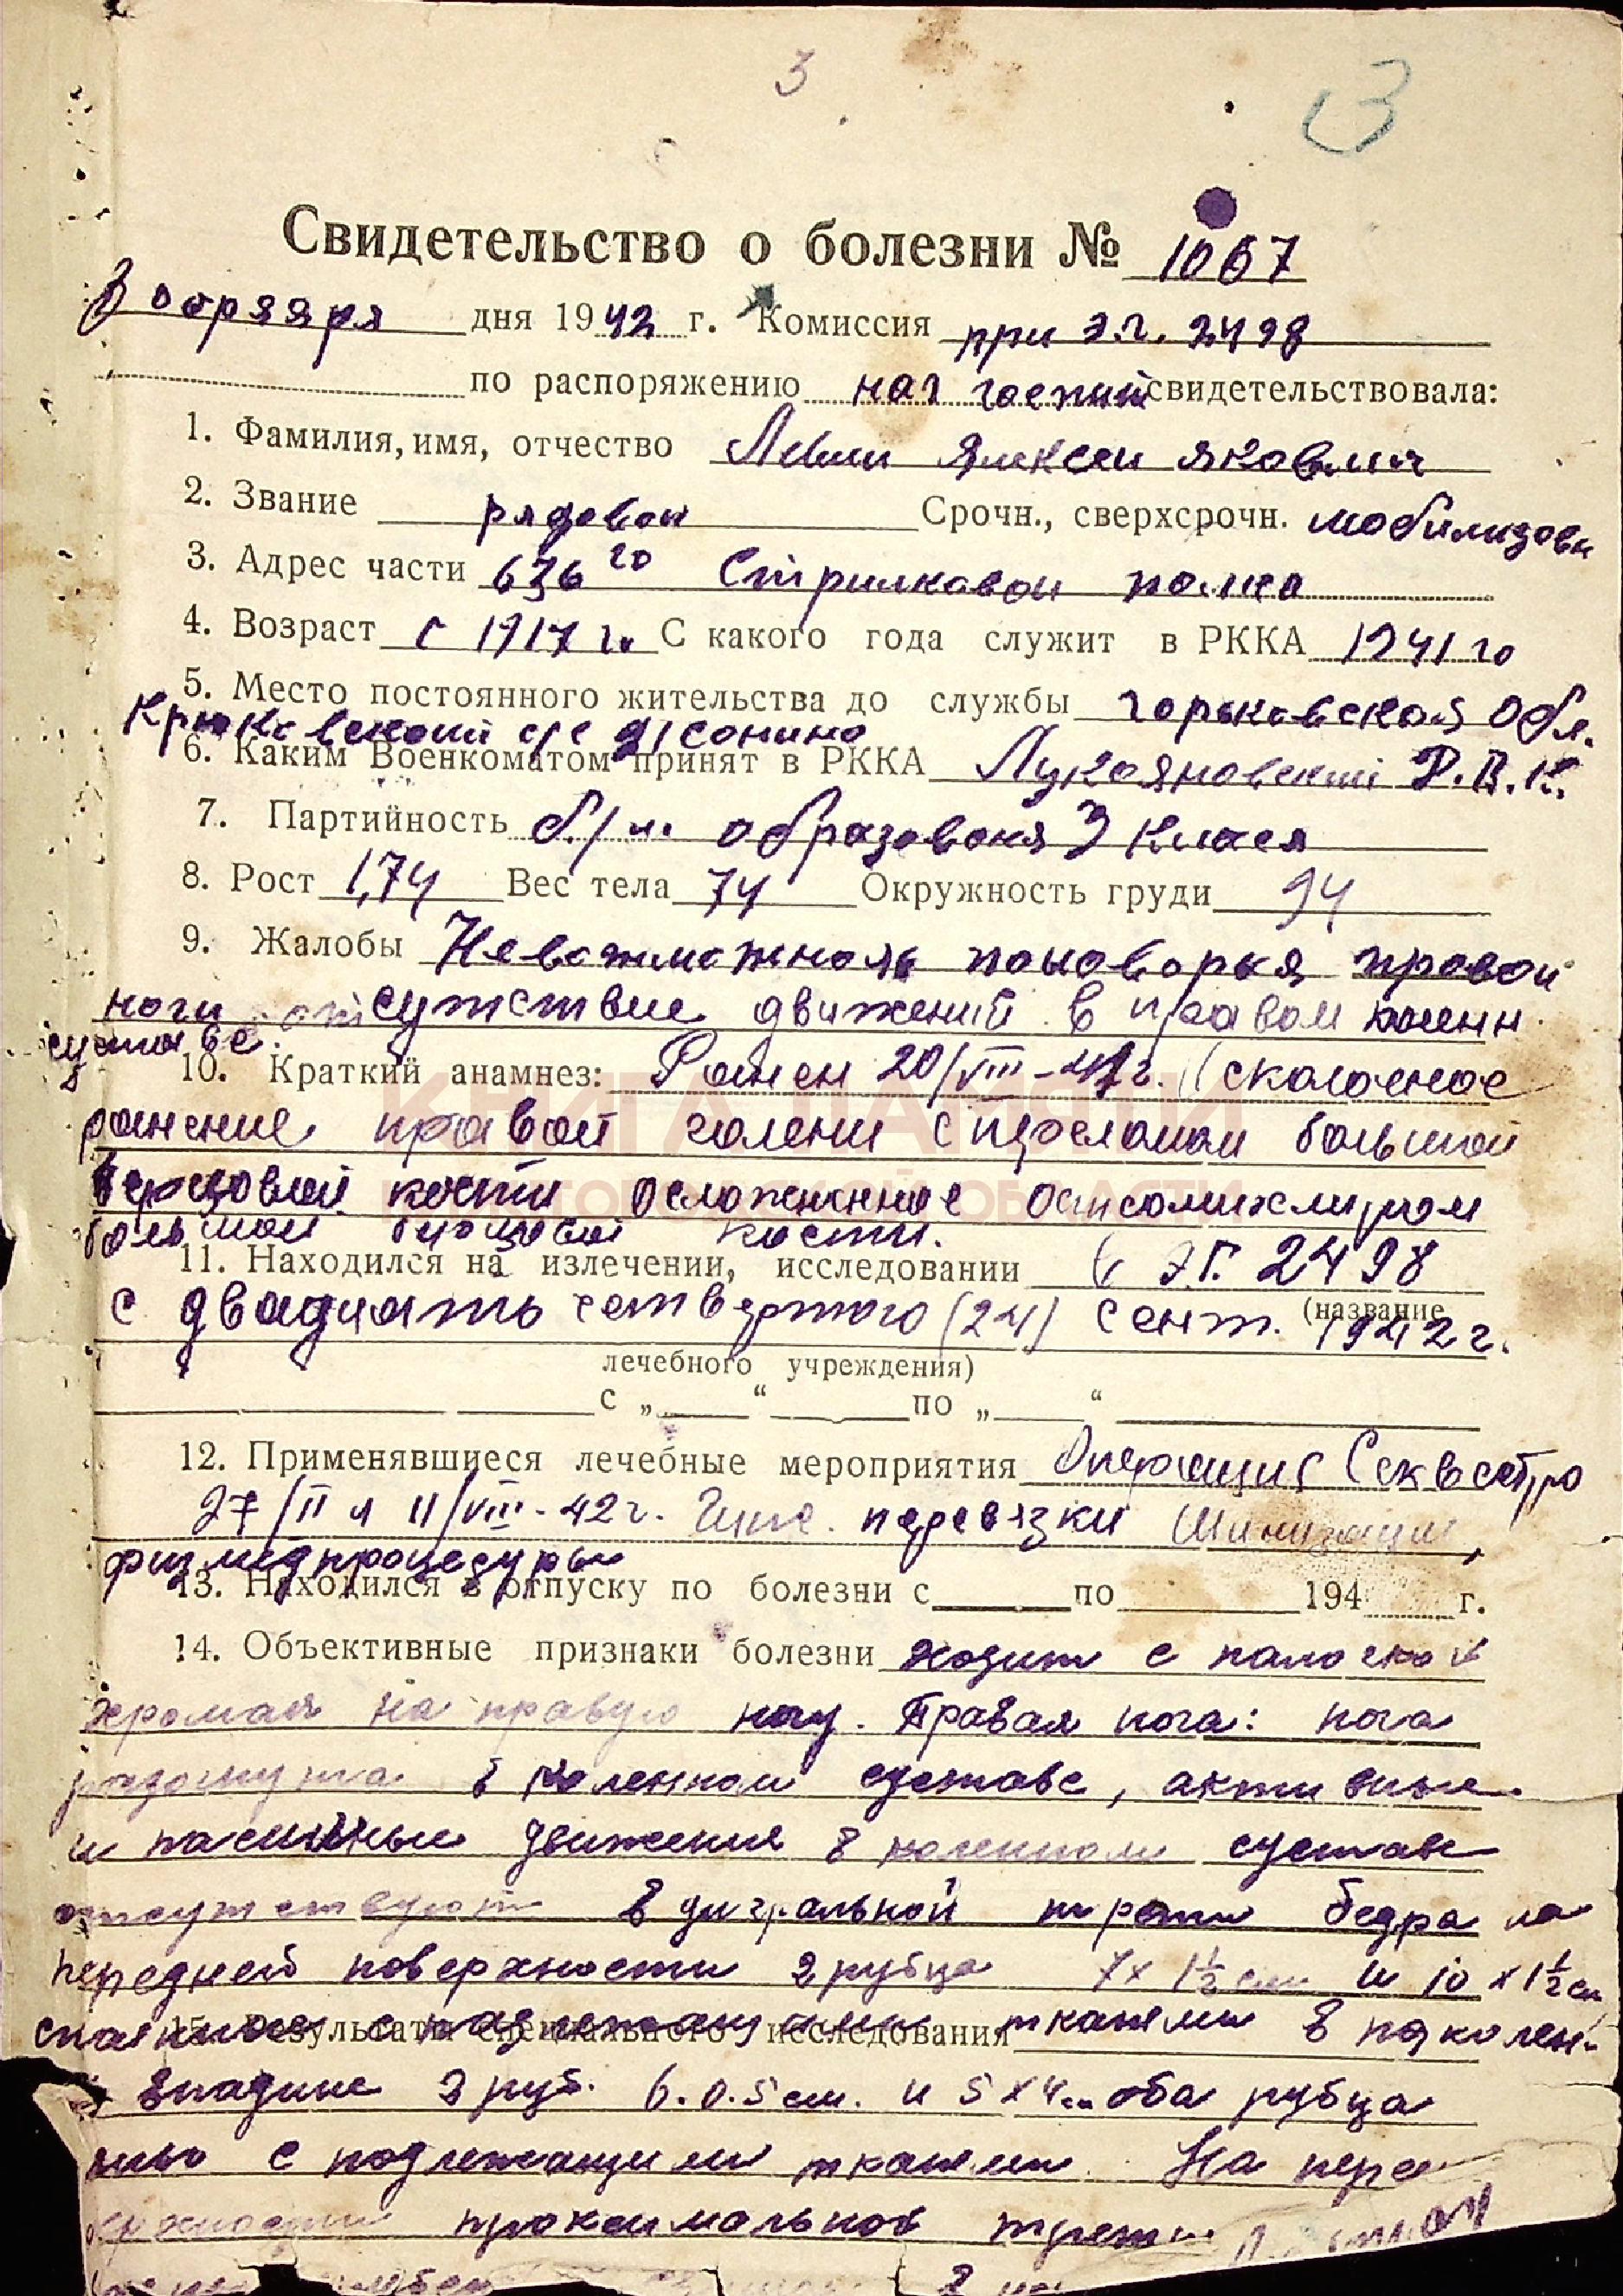 3
3
Свидетельство о болезни № 1067
дня 1942 г. Комиссия при Э.Г. 2498
по распоряжению нач госпит свидетельствовала:
1. Фамилия, имя, отчество Алексеи Яковлич
2. Звание рядовои Срочн., сверхсрочн. мобилизован
3. Адрес части 636 го Стрилкавои полка
4. Возраст с 1917 г. С какого года служит в РККА 1941 го
5. Место постоянного жительства до службы Горьковская Обл.
с/с
6. Каким Военкоматом принят в РККА Лукояновский Р.В.К.
7. Партийность б/п. образованя 3 класа
8. Рост 1,74 Вес тела 74 Окружность груди 94
9. Жалобы правои
ноги отсутствие движений в правом коленн.
суставе.
10. Краткий анамнез: Ранен 20/VIII-41г. (сколочное
ранение правой голени с переломом большой
берцовой кости осложненное остеомиелитом
большой берцовой кости.
КНИГА ПАМЯТИ
НИЖЕГОРОДСКОЙ ОБЛАСТИ
11. Находился на излечении, исследовании в Э.Г. 2498
с двадцать четвертого (24) сент. 1942 г.
(название
лечебного учреждения)
с „ “ по „ “
12. Применявшиеся лечебные мероприятия Операция Секвестро
27/II и 11/VIII-42 г. Гипс. перевязки
физмедпроцедуры
13. Находился в отпуску по болезни с по 194 г.
14. Объективные признаки болезни ходит с палочкой
хромая на правую ногу. Правая нога: нога
разогнута в коленном суставе, активные
и пассивные движения в коленном суставе
отсутствуют В дистальной трети бедра на
передней поверхности 2 рубца 7 х 1½ см и 10 х 1½ см
спаянные с подлежащими тканями В подколен-
15. Результаты специального исследования
впадине 2 руб. 6. 0.5 см. и 5 х 4 см оба рубца
с подлежащими тканями. На пере
проксимальной трети